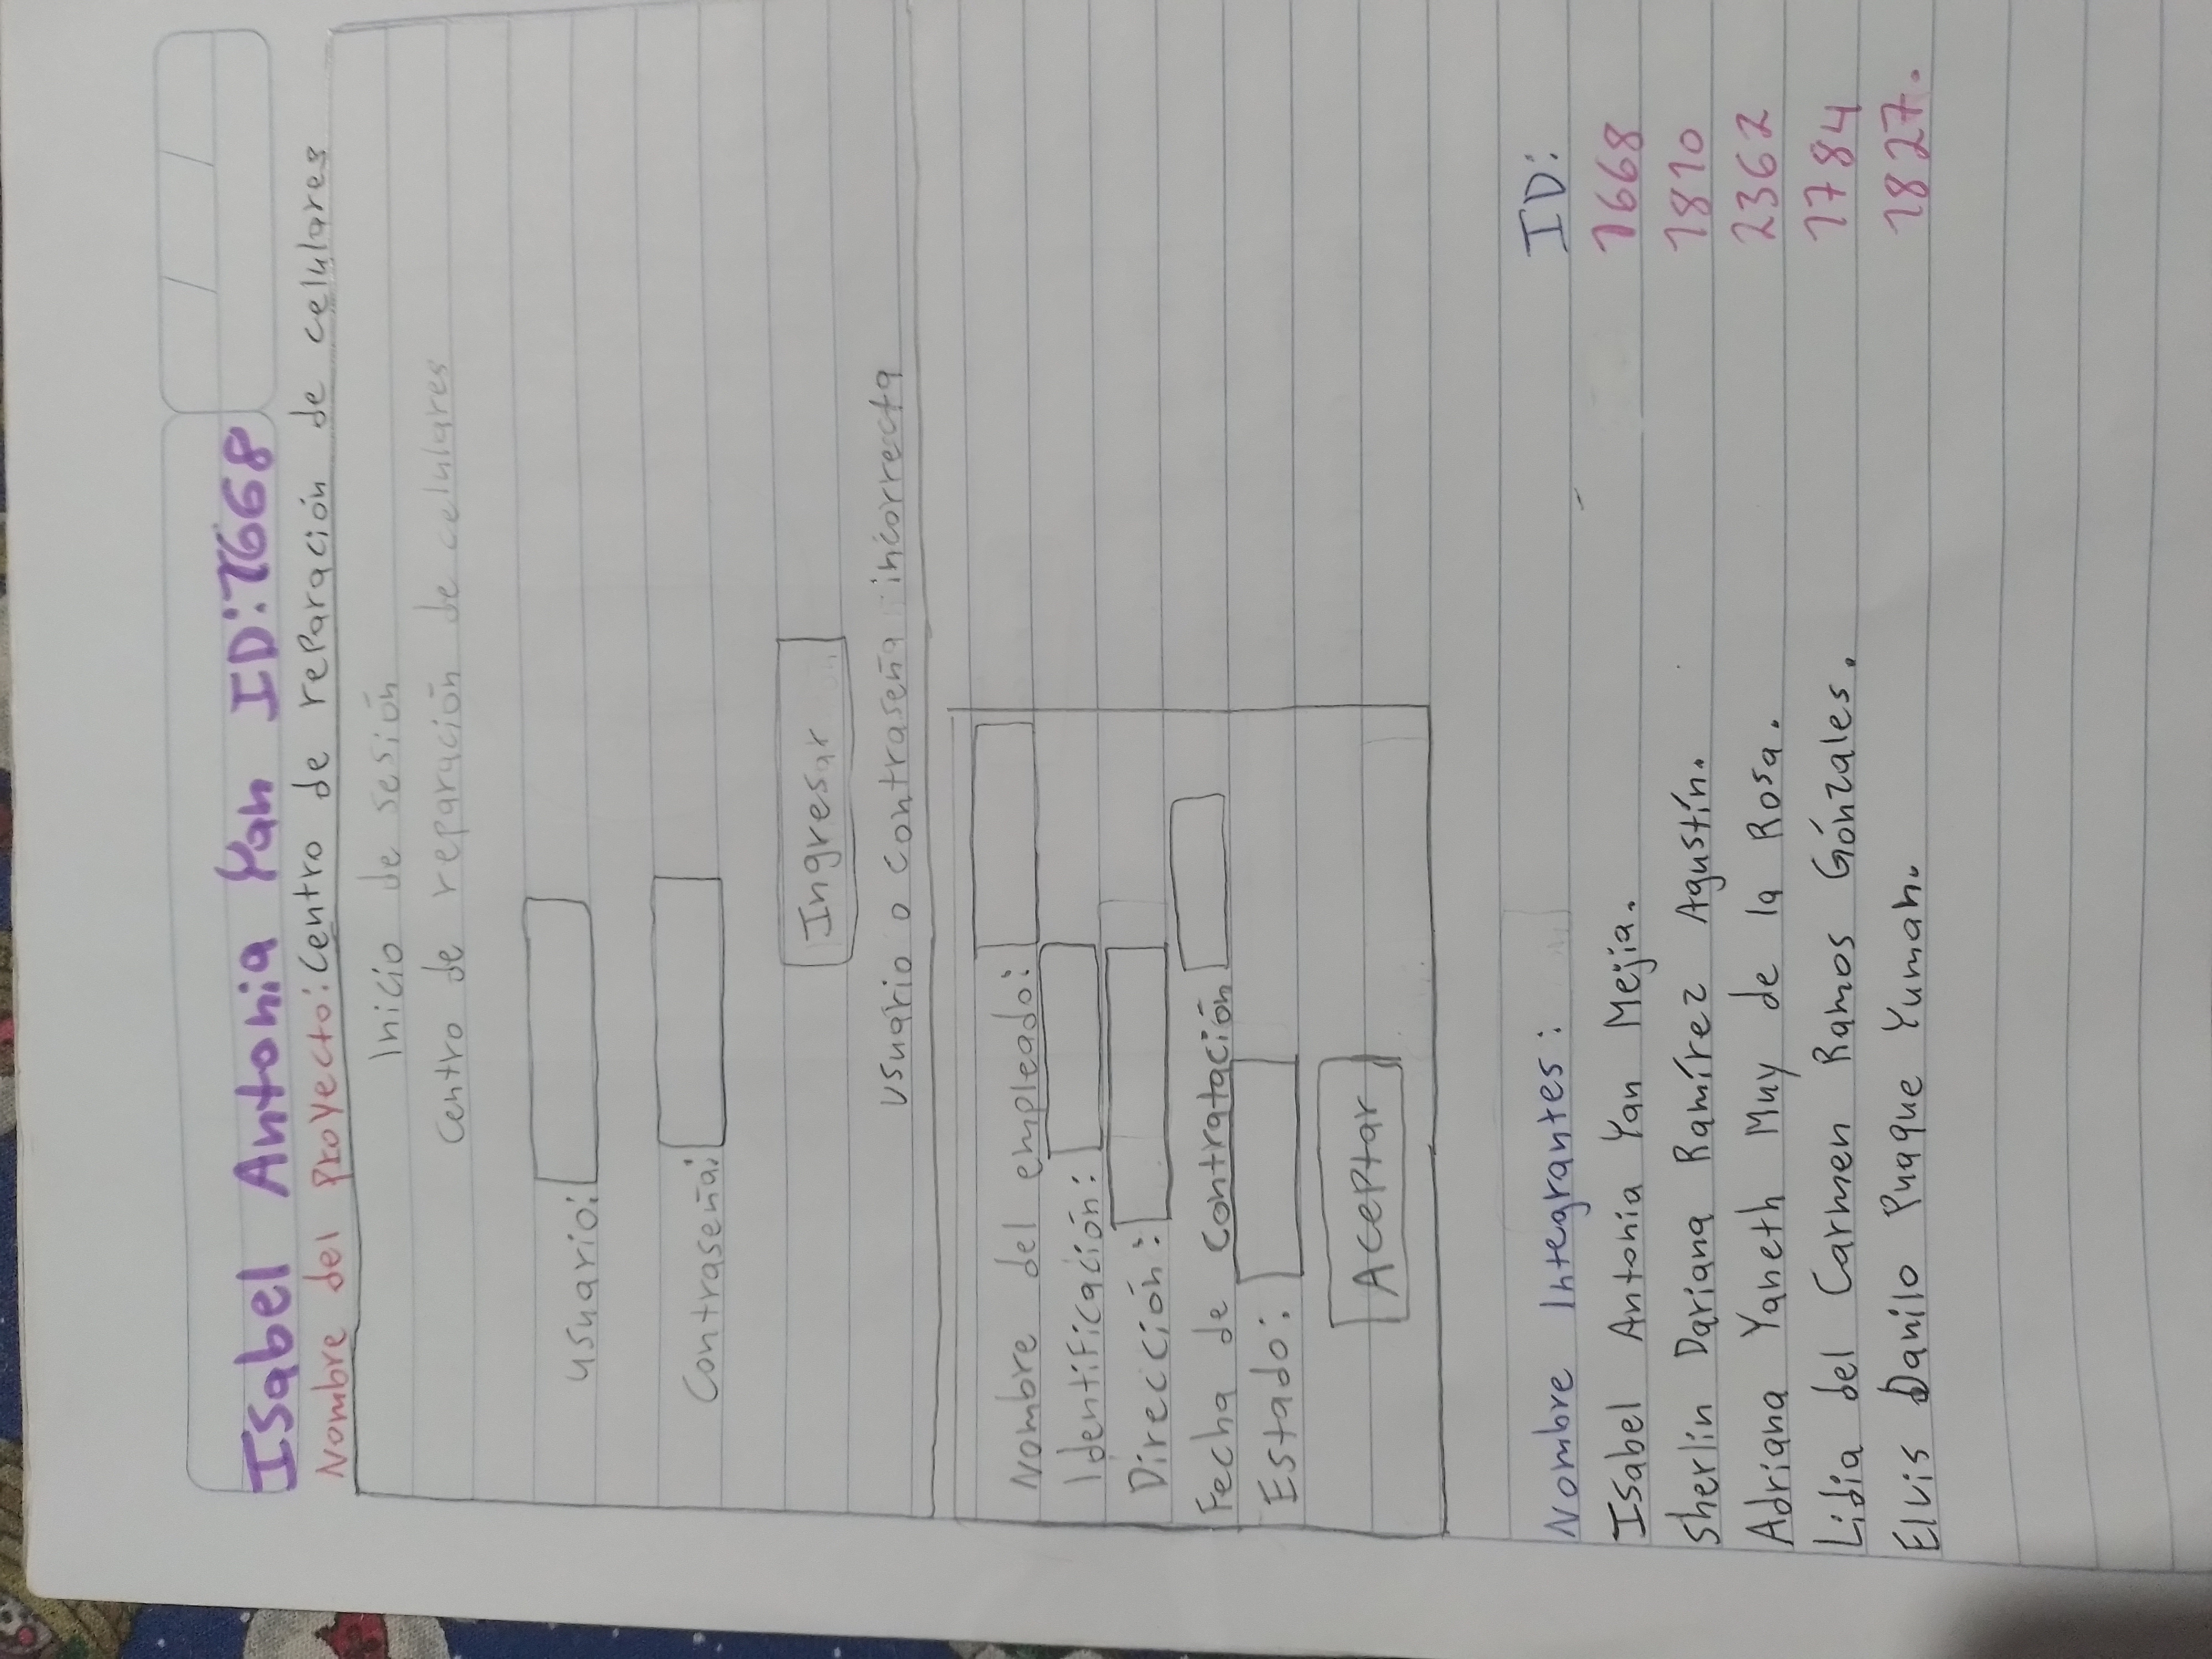 Isabel Antonia Yan ID:1668
Nombre del Proyecto: Centro de reparación de celulares
Inicio de sesión
Centro de reparación de celulares
usuario:
Contraseña:
Ingresar
usuario o contraseña incorrecta
Nombre del empleado:
Identificación:
Dirección:
Fecha de Contratación
Estado:
Aceptar
Nombre Integrantes: ID:
Isabel Antonia Yan Mejia. 1668
Sherlin Dariana Ramírez Agustín. 1810
Adriana Yaneth Muy de la Rosa. 2362
Lidia del Carmen Ramos Gónzales. 1784
Elvis Danilo Puaque Yuman. 1827.